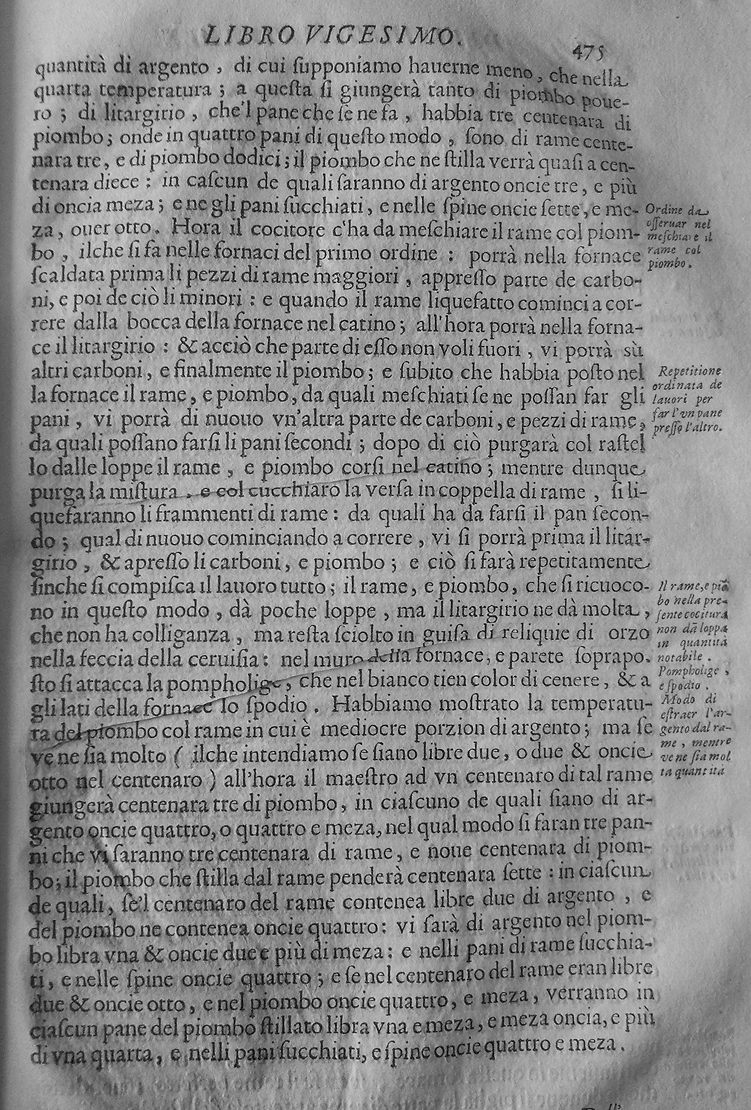 LIBRO VIGESIMO.
475
quantità di argento, di cui ſupponiamo hauerne meno, che nella
quarta temperatura; a queſta ſi giungerà tanto di piombo poue-
ro; di litargirio, che'l pane che ſe ne fa, habbia tre centenara di
piombo; onde in quattro pani di queſto modo, ſono di rame cente-
nara tre, e di piombo dodici; il piombo che ne ſtilla verrà quaſi a cen-
tenara diece: in caſcun de quali ſaranno di argento oncie tre, e più
di oncia meza; e ne gli pani ſucchiati, e nelle ſpine oncie ſette, e me-
za, ouer otto. Hora il cocitore c'ha da meſchiare il rame col piom-
bo, ilche ſi fa nelle fornaci del primo ordine: porrà nella fornace
ſcaldata prima li pezzi di rame maggiori, appreſſo parte de carbo-
ni, e poi de ciò li minori: e quando il rame liquefatto cominci a cor-
rere dalla bocca della fornace nel catino; all'hora porrà nella forna-
ce il litargirio: & acciò che parte di eſſo non voli fuori, vi porrà sù
altri carboni, e finalmente il piombo; e ſubito che habbia poſto nel
la fornace il rame, e piombo, da quali meſchiati ſe ne poſſan far gli
pani, vi porrà di nuouo vn'altra parte de carboni, e pezzi di rame,
da quali poſſano farſi li pani ſecondi; dopo di ciò purgarà col raſtel
lo dalle loppe il rame, e piombo corſi nel catino; mentre dunque
purga la miſtura, e col cucchiaro la verſa in coppella di rame, ſi li-
quefaranno li frammenti di rame: da quali ha da farſi il pan ſecon-
do; qual di nuouo cominciando a correre, vi ſi porrà prima il litar-
girio, & apreſſo li carboni, e piombo; e ciò ſi farà repetitamente
finche ſi compiſca il lauoro tutto; il rame, e piombo, che ſi ricuoco-
no in queſto modo, dà poche loppe, ma il litargirio ne dà molta,
che non ha colliganza, ma reſta ſciolto in guiſa di reliquie di orzo
nella feccia della ceruiſia: nel muro della fornace, e parete ſoprapo.
ſto ſi attacca la pompholige, che nel bianco tien color di cenere, & a
gli lati della fornace lo ſpodio. Habbiamo moſtrato la temperatu-
ra del piombo col rame in cui è mediocre porzion di argento; ma ſe
ve ne ſia molto (ilche intendiamo ſe ſiano libre due, o due & oncie
otto nel centenaro) all'hora il maeſtro ad vn centenaro di tal rame
giungerà centenara tre di piombo, in ciaſcuno de quali ſiano di ar-
gento oncie quattro, o quattro e meza, nel qual modo ſi faran tre pan-
ni che vi ſaranno tre centenara di rame, e noue centenara di piom-
bo; il piombo che ſtilla dal rame penderà centenara ſette: in ciaſcun
de quali, ſe'l centenaro del rame contenea libre due di argento, e
del piombo ne contenea oncie quattro: vi ſarà di argento nel piom-
bo libra vna & oncie due e più di meza: e nelli pani di rame ſucchia-
ti, e nelle ſpine oncie quattro; e ſe nel centenaro del rame eran libre
due & oncie otto, e nel piombo oncie quattro, e meza, verranno in
ciaſcun pane del piombo ſtillato libra vna e meza, e meza oncia, e più
di vna quarta, e nelli pani ſucchiati, e ſpine oncie quattro e meza.
Ordine da
oſſeruar nel
meſchiare il
rame col
piombo.
Repetitione
ordinata de
lauori per
far l'vn pane
preſſo l'altro.
Il rame, e piō
bo nella pre-
ſente cocitura
non dā loppa
in quantità
notabile.
Pompholige,
e ſpodio.
Modo di
eſtraer l'ar-
gento dal ra-
me, mentre
ve ne ſia mol
ta quantità